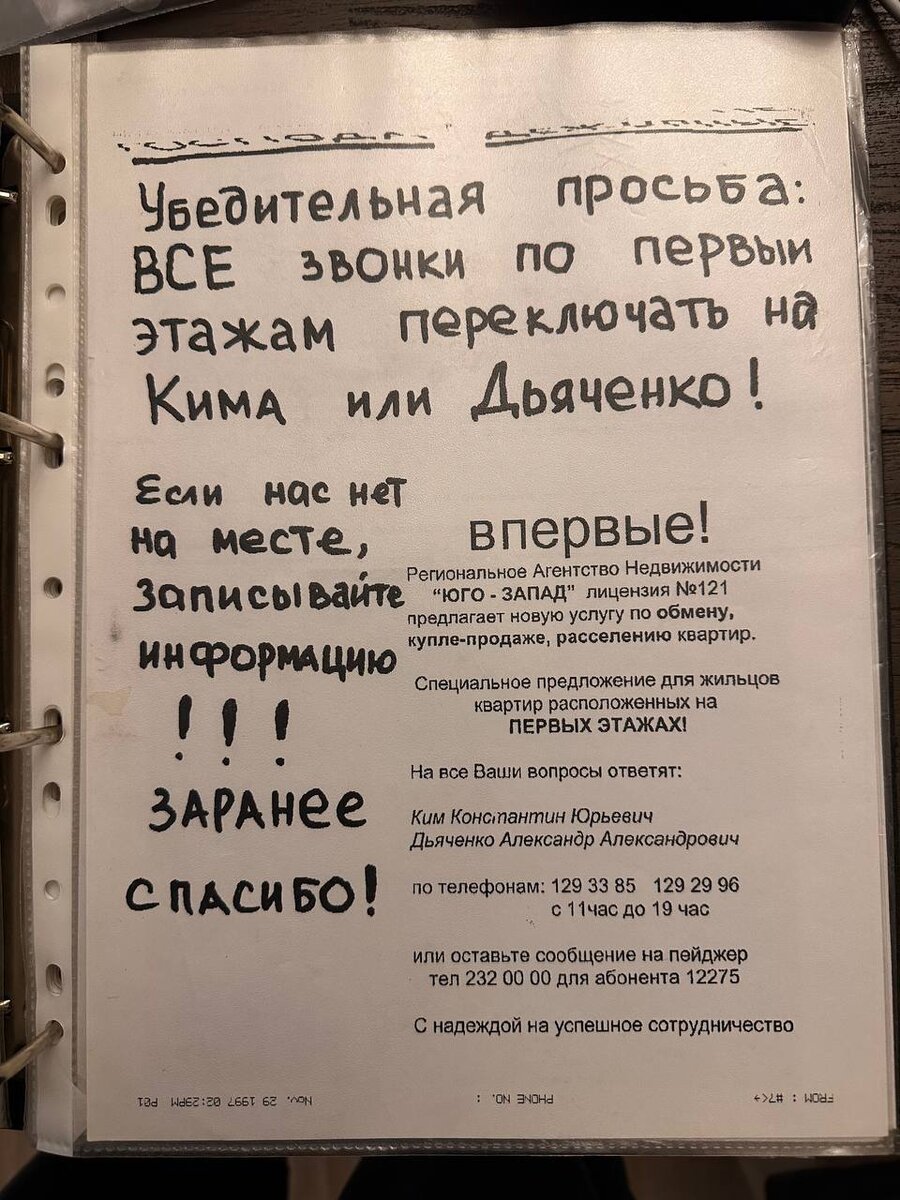 Убедительная просьба:
ВСЕ звонки по первым
этажам переключать на
Кима или Дьяченко!
Если нас нет
на месте,
записывайте
информацию
!!!
ЗАРАНее
СПАСИБО!
впервые!
Региональное Агентство Недвижимости
“ЮГО - ЗАПАД” лицензия №121
предлагает новую услугу по обмену,
купле-продаже, расселению квартир.
Специальное предложение для жильцов
квартир расположенных на
ПЕРВЫХ ЭТАЖАХ!
На все Ваши вопросы ответят:
Ким Константин Юрьевич
Дьяченко Александр Александрович
по телефонам: 129 33 85 129 29 96
с 11час до 19 час
или оставьте сообщение на пейджер
тел 232 00 00 для абонента 12275
С надеждой на успешное сотрудничество
FROM : #7<+> PHONE NO. : Nov. 29 1997 02:29PM P01